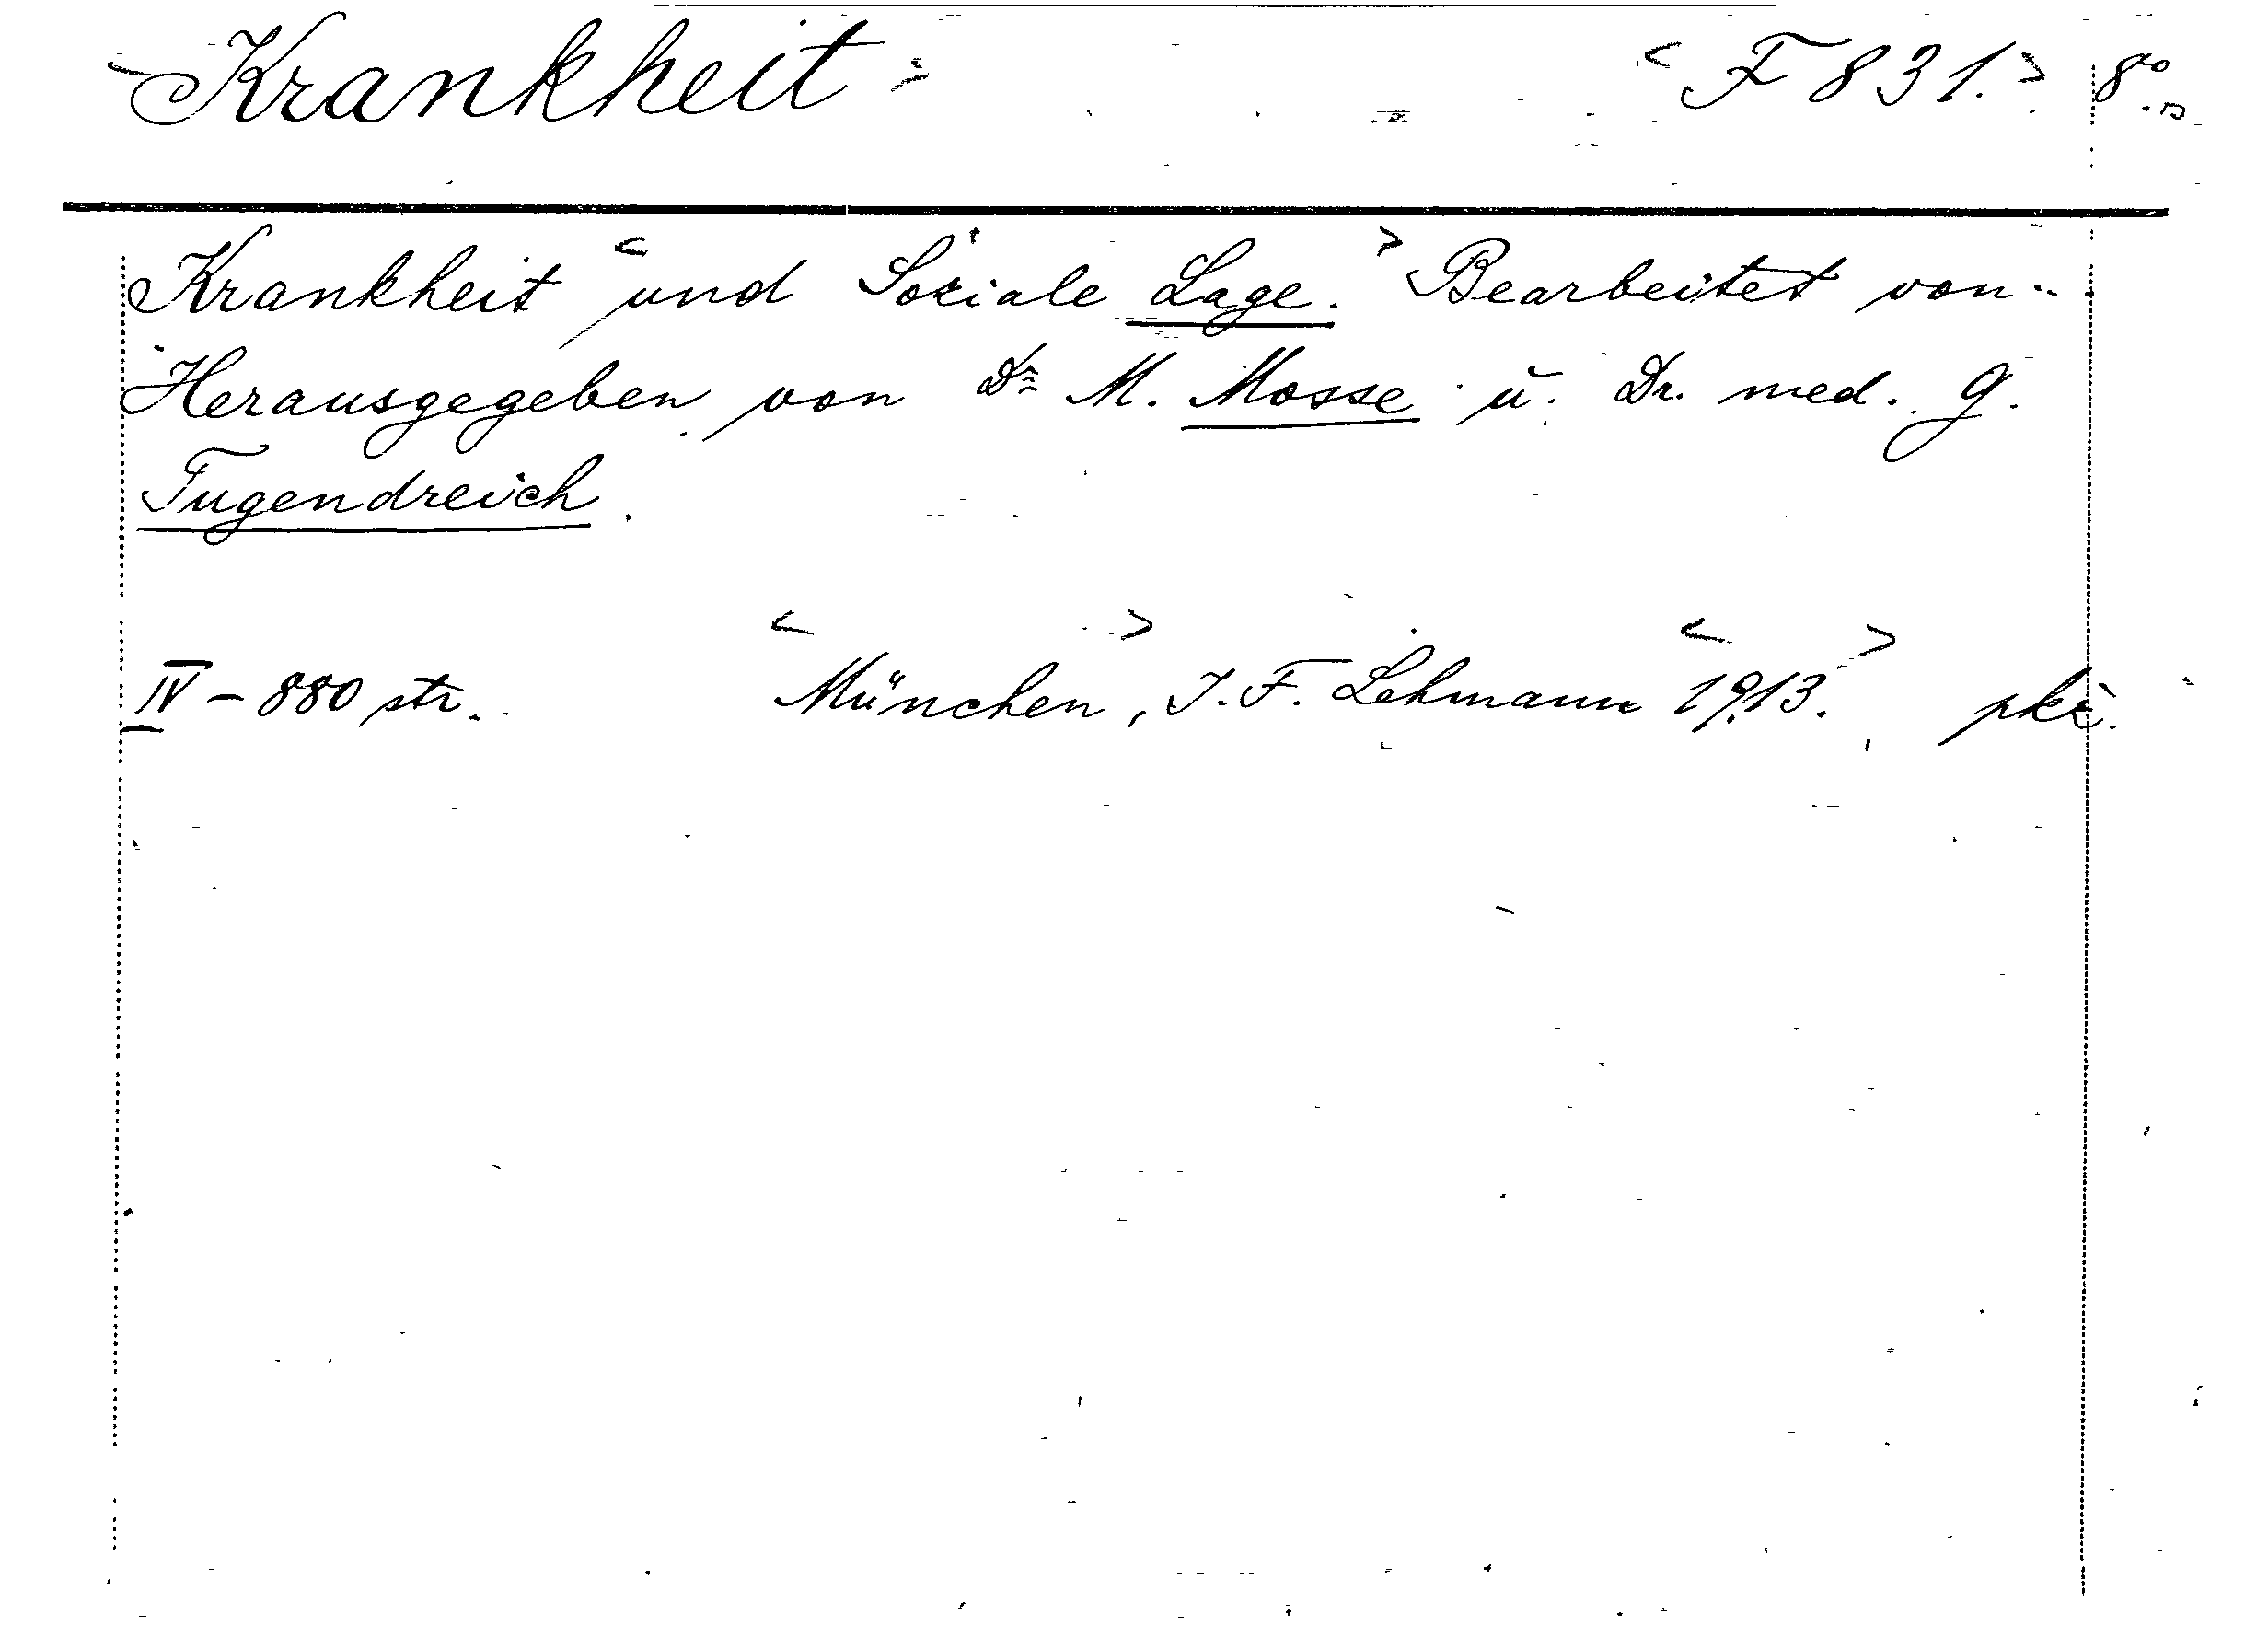 Krankheit <F 831.> 8°
Krankheit <und Soziale Lage.> Bearbeitet von..
Herausgegeben von Dr M. Mosse u. Dr. med. G.
Tugendreich.
IV - 880 str. <München>, J. F. Lehmann <1913.>